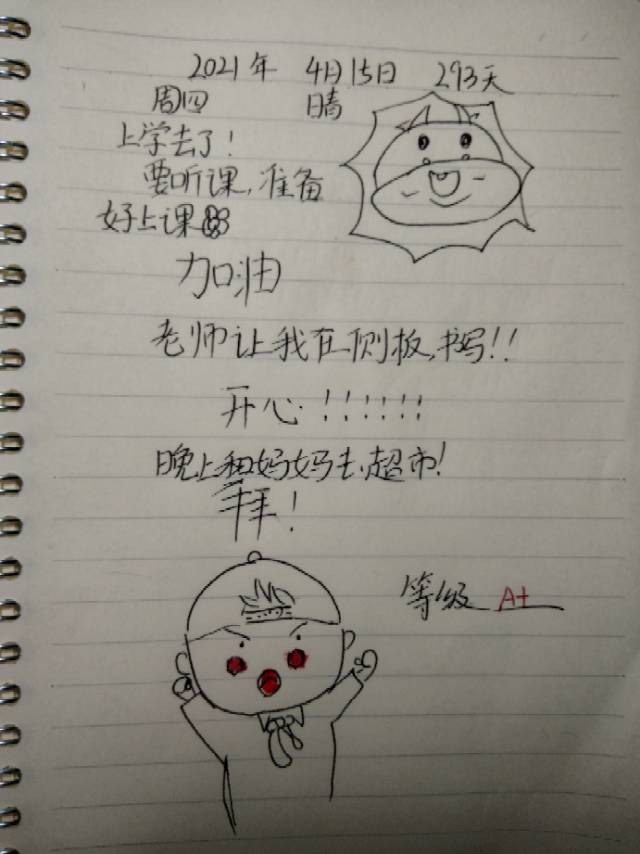 2021年 4月15日 293天
周四 晴
上学去了!
要听课,准备
好上课
加油
老师让我在侧板,书写!!
开心!!!!!!
晚上和妈妈去超市!
拜!
等级 A+